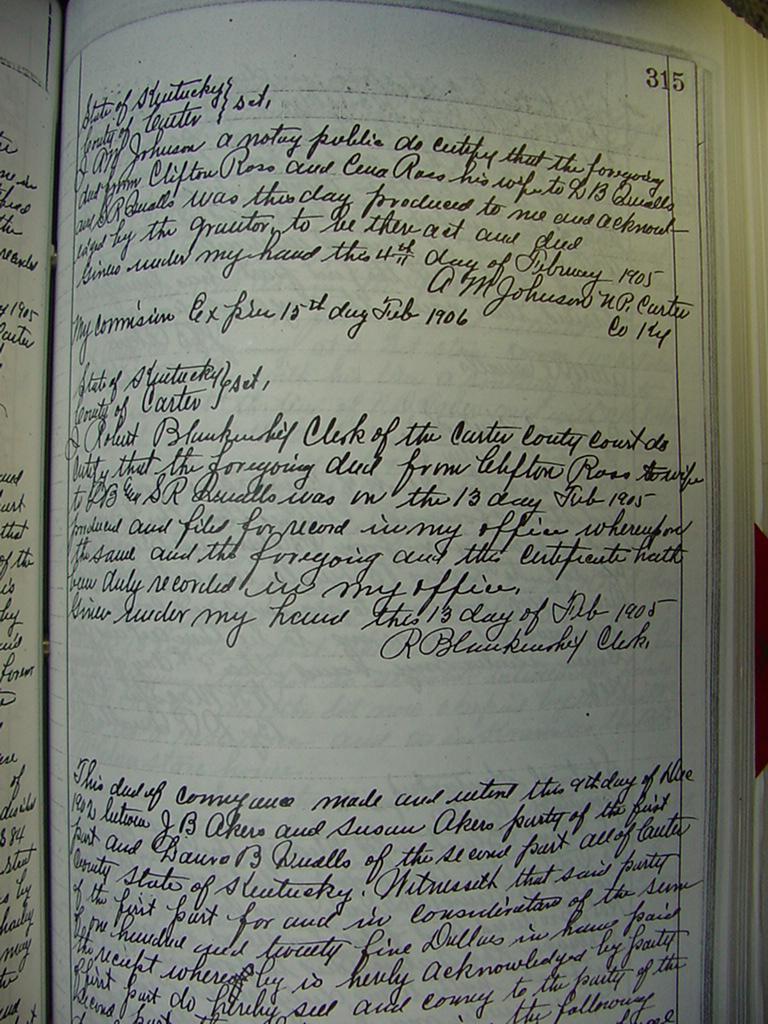 315
State of Kentucky } sct,
County of Carter
I A M Johnson a notay public do certify that the foregoing
deed from Clifton Ross and Cena Ross his wife to L B Qualls
and S R Qualls was this day produced to me and acknowl-
edged by the grantor, to be there act and deed
Given under my hand this 4th day of February 1905
A M Johnson N.P. Carter
Co Ky
My commision Expires 15th day Feb 1906
State of Kentucky } sct,
County of Carter
I Robert Blankenship Clerk of the Carter Couty court do
certify that the foregoing deed from Clifton Ross to wife
to L B & S R Qualls was on the 13 day Feb 1905
produced and filed for record in my office whereupon
the same and the foregoing and this certificate hath
been duly recorded in my office.
Given under my hand this 13 day of Feb 1905
R Blankenship Clerk.
This deed of conveyance made and entered this 9th day of Dec
1902 between J B Akers and Susan Akers party of the first
part and B Qualls of the second part all of Carter
County State of Kentucky. Witnesseth that said party
of the first part for and in consideration of the sum
of one hundred and twenty five Dollars in hand paid
the receipt whereof is herely acknowledged by party
of first part do hereby sell and convey to the party of the
second part the following